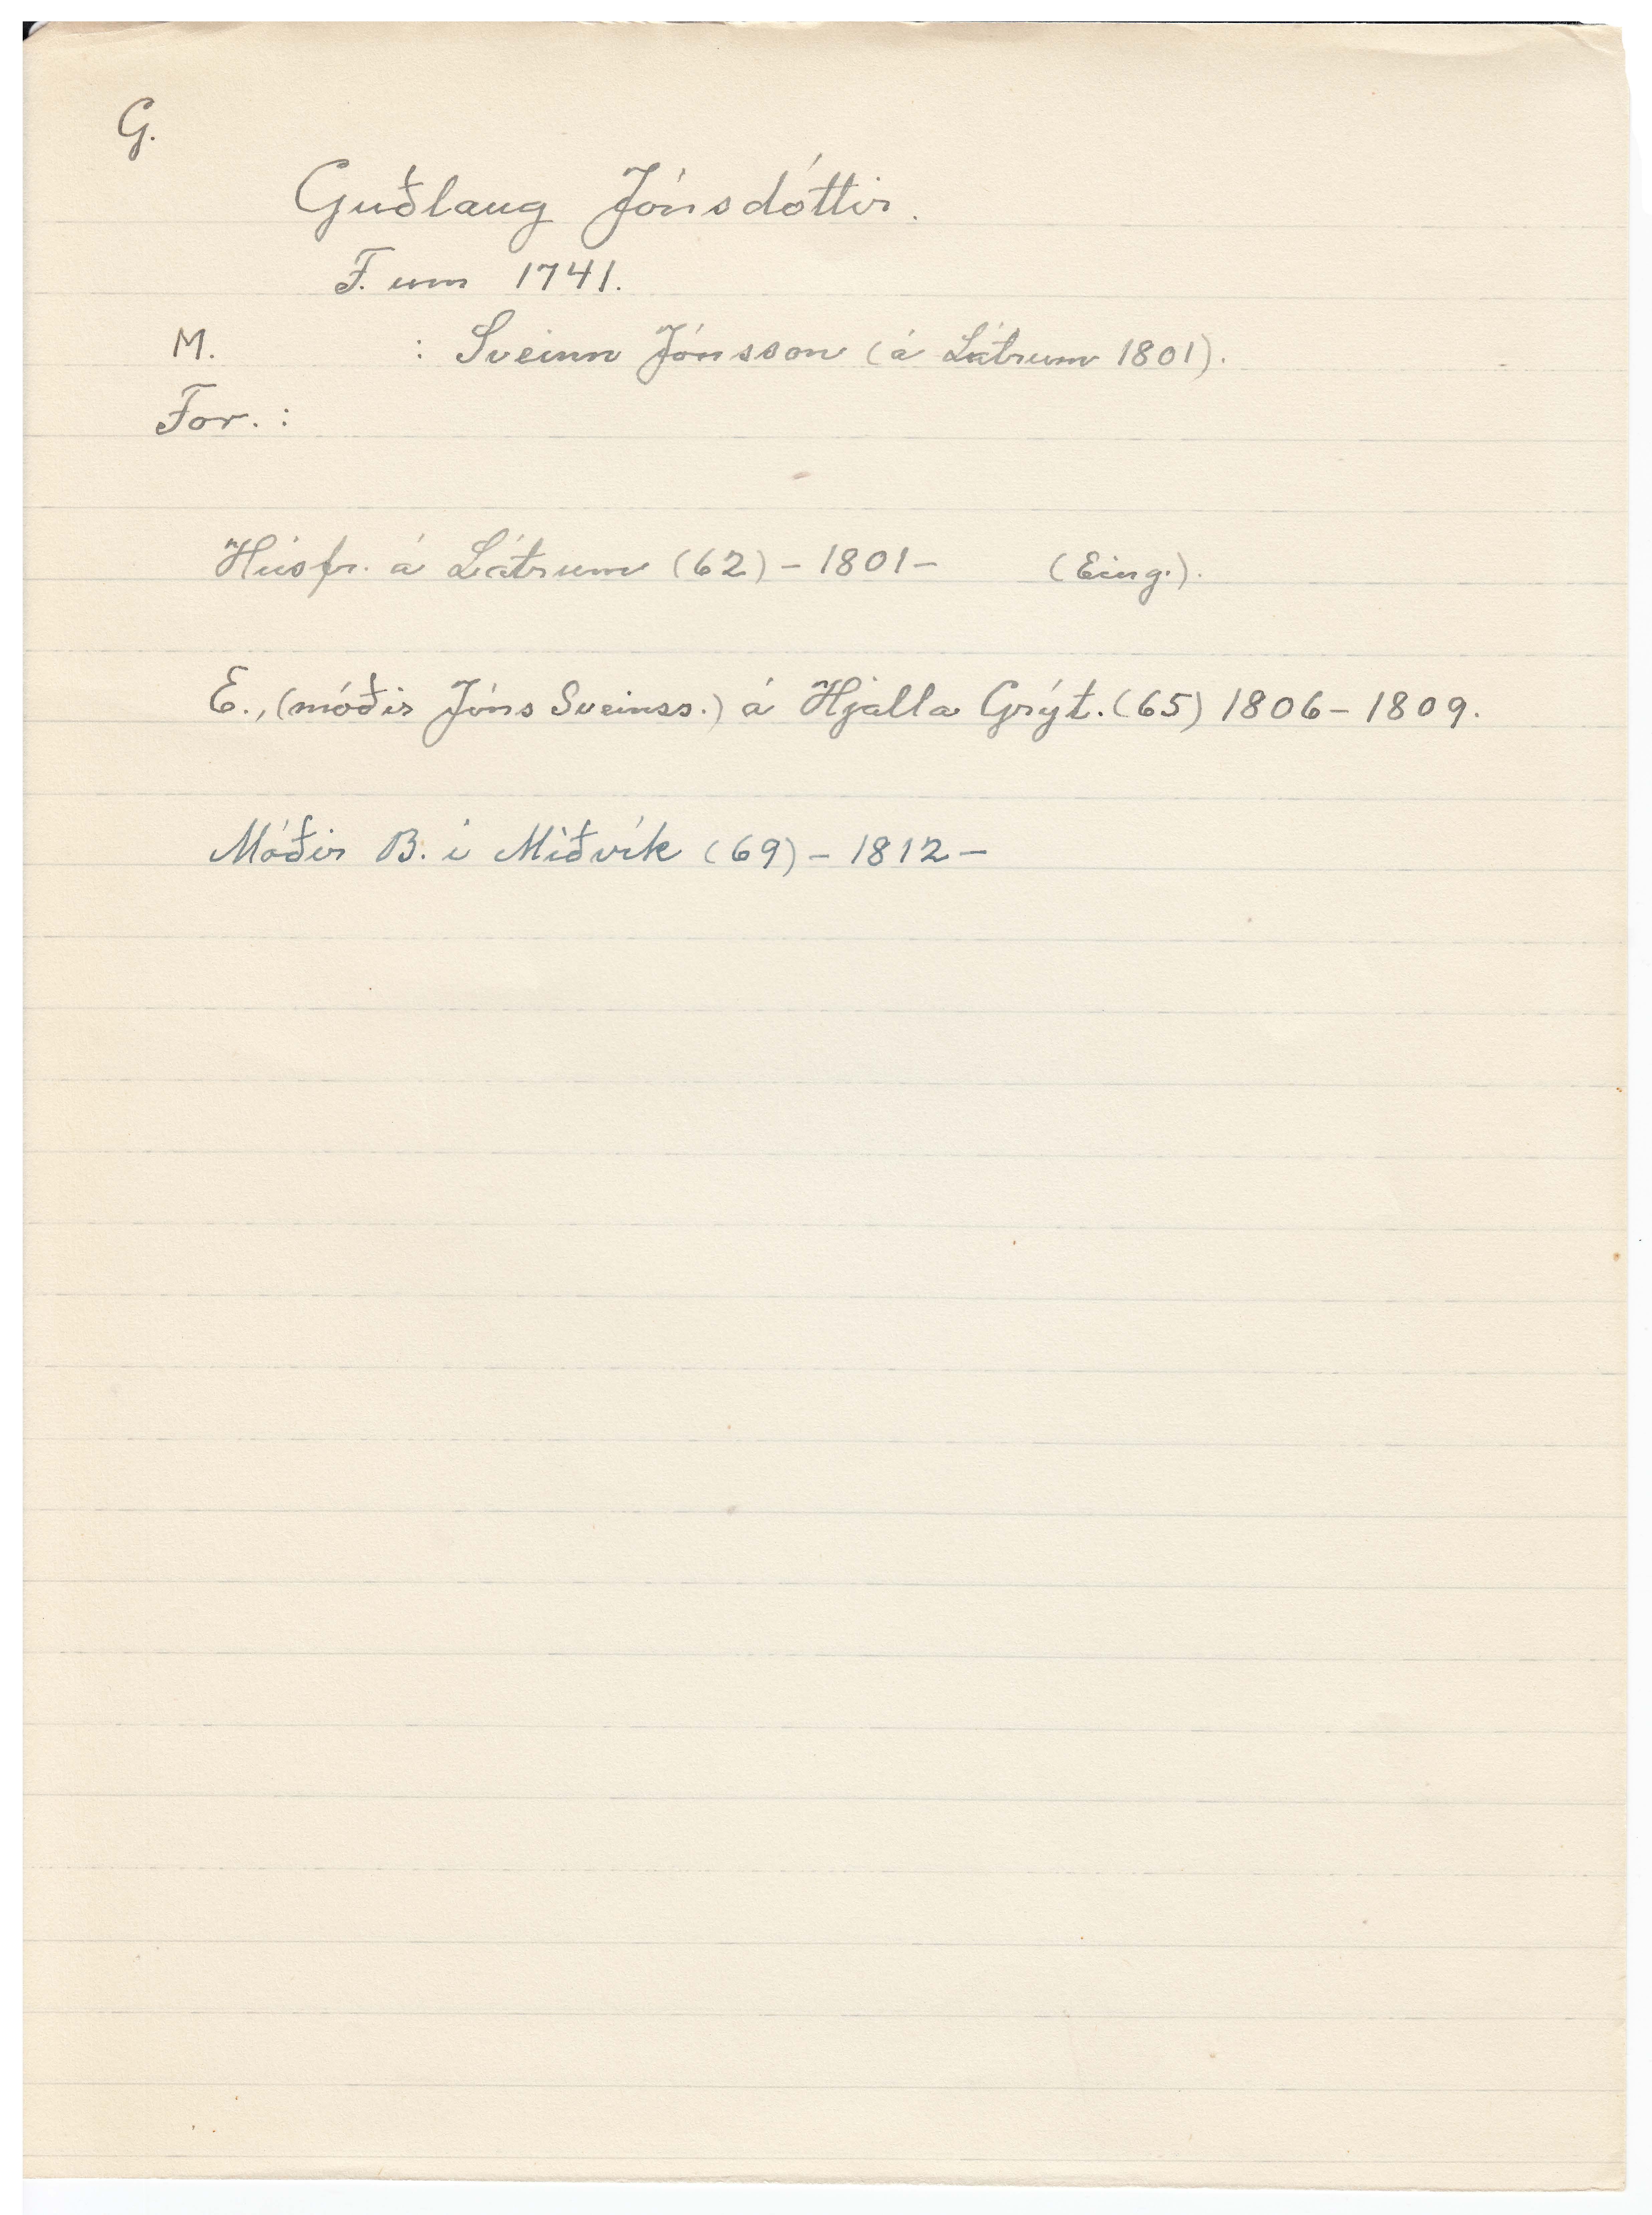 G.
Guðlaug Jónsdóttir.
F. um 1741.
M. : Sveinn Jónsson (á Látrum 1801).
For. :
Húsfr. á Látrum (62) - 1801 - (Eing.).
E., (móðir Jóns Sveinss.) á Hjalla Grýt. (65) 1806 - 1809.
Móðir B. í Miðvík (69) - 1812 -